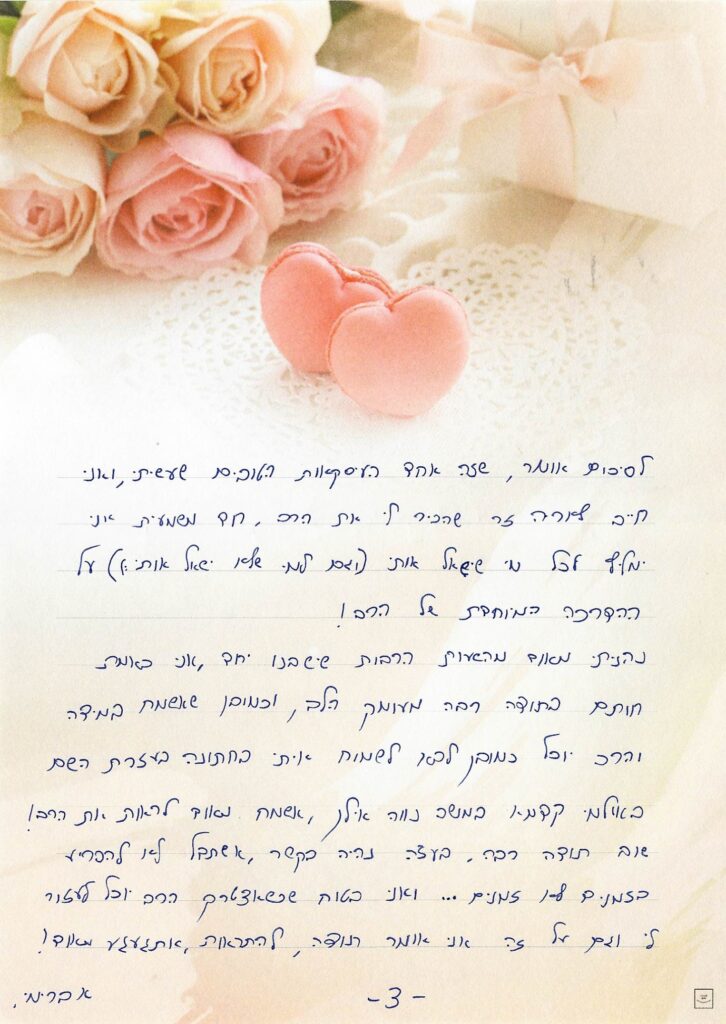 לסיכום אומר, שזה אחד העיסקאות הטובים שעשיתי, ואני
חייב לאריה זר שהכיר לי את הרב. חד משמעית אני
ימליץ לכל מי שישאל אותי (וגם למי שלא ישאל אותי :)) על
ההדרכה המיוחדת של הרב!
נהניתי מאוד מהשעות הרבות שישבנו יחד, אני באמת
חותם בתודה רבה מעומק הלב, וכמובן שאשמח במידה
והרב יוכל כמובן לבא לשמוח איתי בחתונה בעזרת השם
באולמי קדמא במושב נווה אילן, אשמח מאוד לראות את הרב!
שוב תודה רבה, בעצה נהיה בקשר, אשתדל לא להפריע
בזמנים לא זמנים ... ואני בטוח שכשאצטרך הרב יוכל לעזור
לי וגם על זה אני אומר תודה, להתראות, אתגעגע מאוד!
אברימי.
-3-